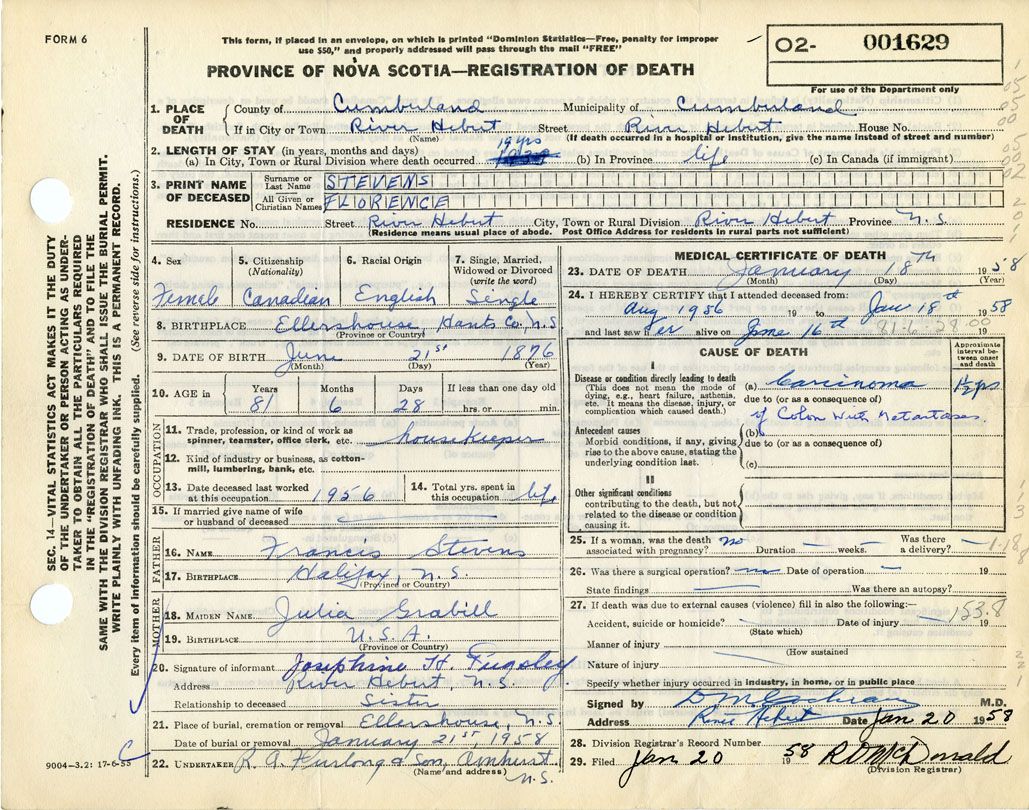 FORM 6
This form, if placed in an envelope, on which is printed "Dominion Statistics—Free, penalty for improper
use $50," and properly addressed will pass through the mail "FREE"
PROVINCE OF NOVA SCOTIA—REGISTRATION OF DEATH
O2- 001629
For use of the Department only
SEC. 14—VITAL STATISTICS ACT MAKES IT THE DUTY
OF THE UNDERTAKER OR PERSON ACTING AS UNDER-
TAKER TO OBTAIN ALL THE PARTICULARS REQUIRED
IN THE "REGISTRATION OF DEATH" AND TO FILE THE
SAME WITH THE DIVISION REGISTRAR WHO SHALL ISSUE THE BURIAL PERMIT.
WRITE PLAINLY WITH UNFADING INK. THIS IS A PERMANENT RECORD.
Every item of information should be carefully supplied. (See reverse side for instructions.)
1. PLACE OF DEATH
County of Cumberland Municipality of Cumberland
If in City or Town River Hebert Street River Hebert House No.
(Name) (If death occurred in a hospital or institution, give the name instead of street and number)
2. LENGTH OF STAY (in years, months and days) 19 yrs
(a) In City, Town or Rural Division where death occurred (b) In Province life (c) In Canada (if immigrant)
3. PRINT NAME OF DECEASED
Surname or Last Name STEVENS
All Given or Christian Names FLORENCE
RESIDENCE No. Street River Hebert City, Town or Rural Division River Hebert Province N.S.
(Residence means usual place of abode. Post Office Address for residents in rural parts not sufficient)
4. Sex 5. Citizenship (Nationality) 6. Racial Origin 7. Single, Married, Widowed or Divorced (write the word)
Female Canadian English Single
8. BIRTHPLACE Ellershouse Hants Co., N.S
(Province or Country)
9. DATE OF BIRTH June 21st 1876
(Month) (Day) (Year)
10. AGE in Years Months Days If less than one day old
81 6 28 hrs. or min.
OCCUPATION
11. Trade, profession, or kind of work as
spinner, teamster, office clerk, etc. housekeeper
12. Kind of industry or business, as cotton-
mill, lumbering, bank, etc.
13. Date deceased last worked
at this occupation 1956
14. Total yrs. spent in
this occupation life
15. If married give name of wife
or husband of deceased
FATHER
16. NAME Francis Stevens
17. BIRTHPLACE Halifax, N.S.
(Province or Country)
MOTHER
18. MAIDEN NAME Julia Grabill
19. BIRTHPLACE U.S.A.
(Province or Country)
20. Signature of informant Josephine H. Pugsley
Address River Hebert, N.S.
Relationship to deceased Sister
21. Place of burial, cremation or removal Ellershouse, N.S
Date of burial or removal January 21st, 1958
22. UNDERTAKER R. A. Furlong & Son, Amherst
(Name and address) N.S.
9004-3.2: 17-6-55
MEDICAL CERTIFICATE OF DEATH
23. DATE OF DEATH January 18th 1958
(Month) (Day) (Year)
24. I HEREBY CERTIFY that I attended deceased from:
Aug 1956 19 to Jan 18th 1958
and last saw her alive on 16th 19
81-6-28-00
CAUSE OF DEATH
Approximate interval between onset and death
I
Disease or condition directly leading to death
(This does not mean the mode of
dying, e.g., heart failure, asthenia,
etc. It means the disease, injury, or
complication which caused death.)
(a) Carcinoma
due to (or as a consequence of)
of Colon with Metastases
Antecedent causes
Morbid conditions, if any, giving
rise to the above cause, stating the
underlying condition last.
(b)
due to (or as a consequence of)
(c)
II
Other significant conditions
contributing to the death, but not
related to the disease or condition
causing it.
25. If a woman, was the death
associated with pregnancy? no Duration weeks. Was there a delivery?
26. Was there a surgical operation? no Date of operation 19
State findings Was there an autopsy?
27. If death was due to external causes (violence) fill in also the following:
Accident, suicide or homicide? Date of injury 19
(State which)
153.8
Manner of injury
(How sustained)
Nature of injury
Specify whether injury occurred in industry, in home, or in public place
Signed by D. M. Cochran M.D.
Address River Hebert Date Jan 20 1958
28. Division Registrar's Record Number
29. Filed Jan 20 1958
(Division Registrar)